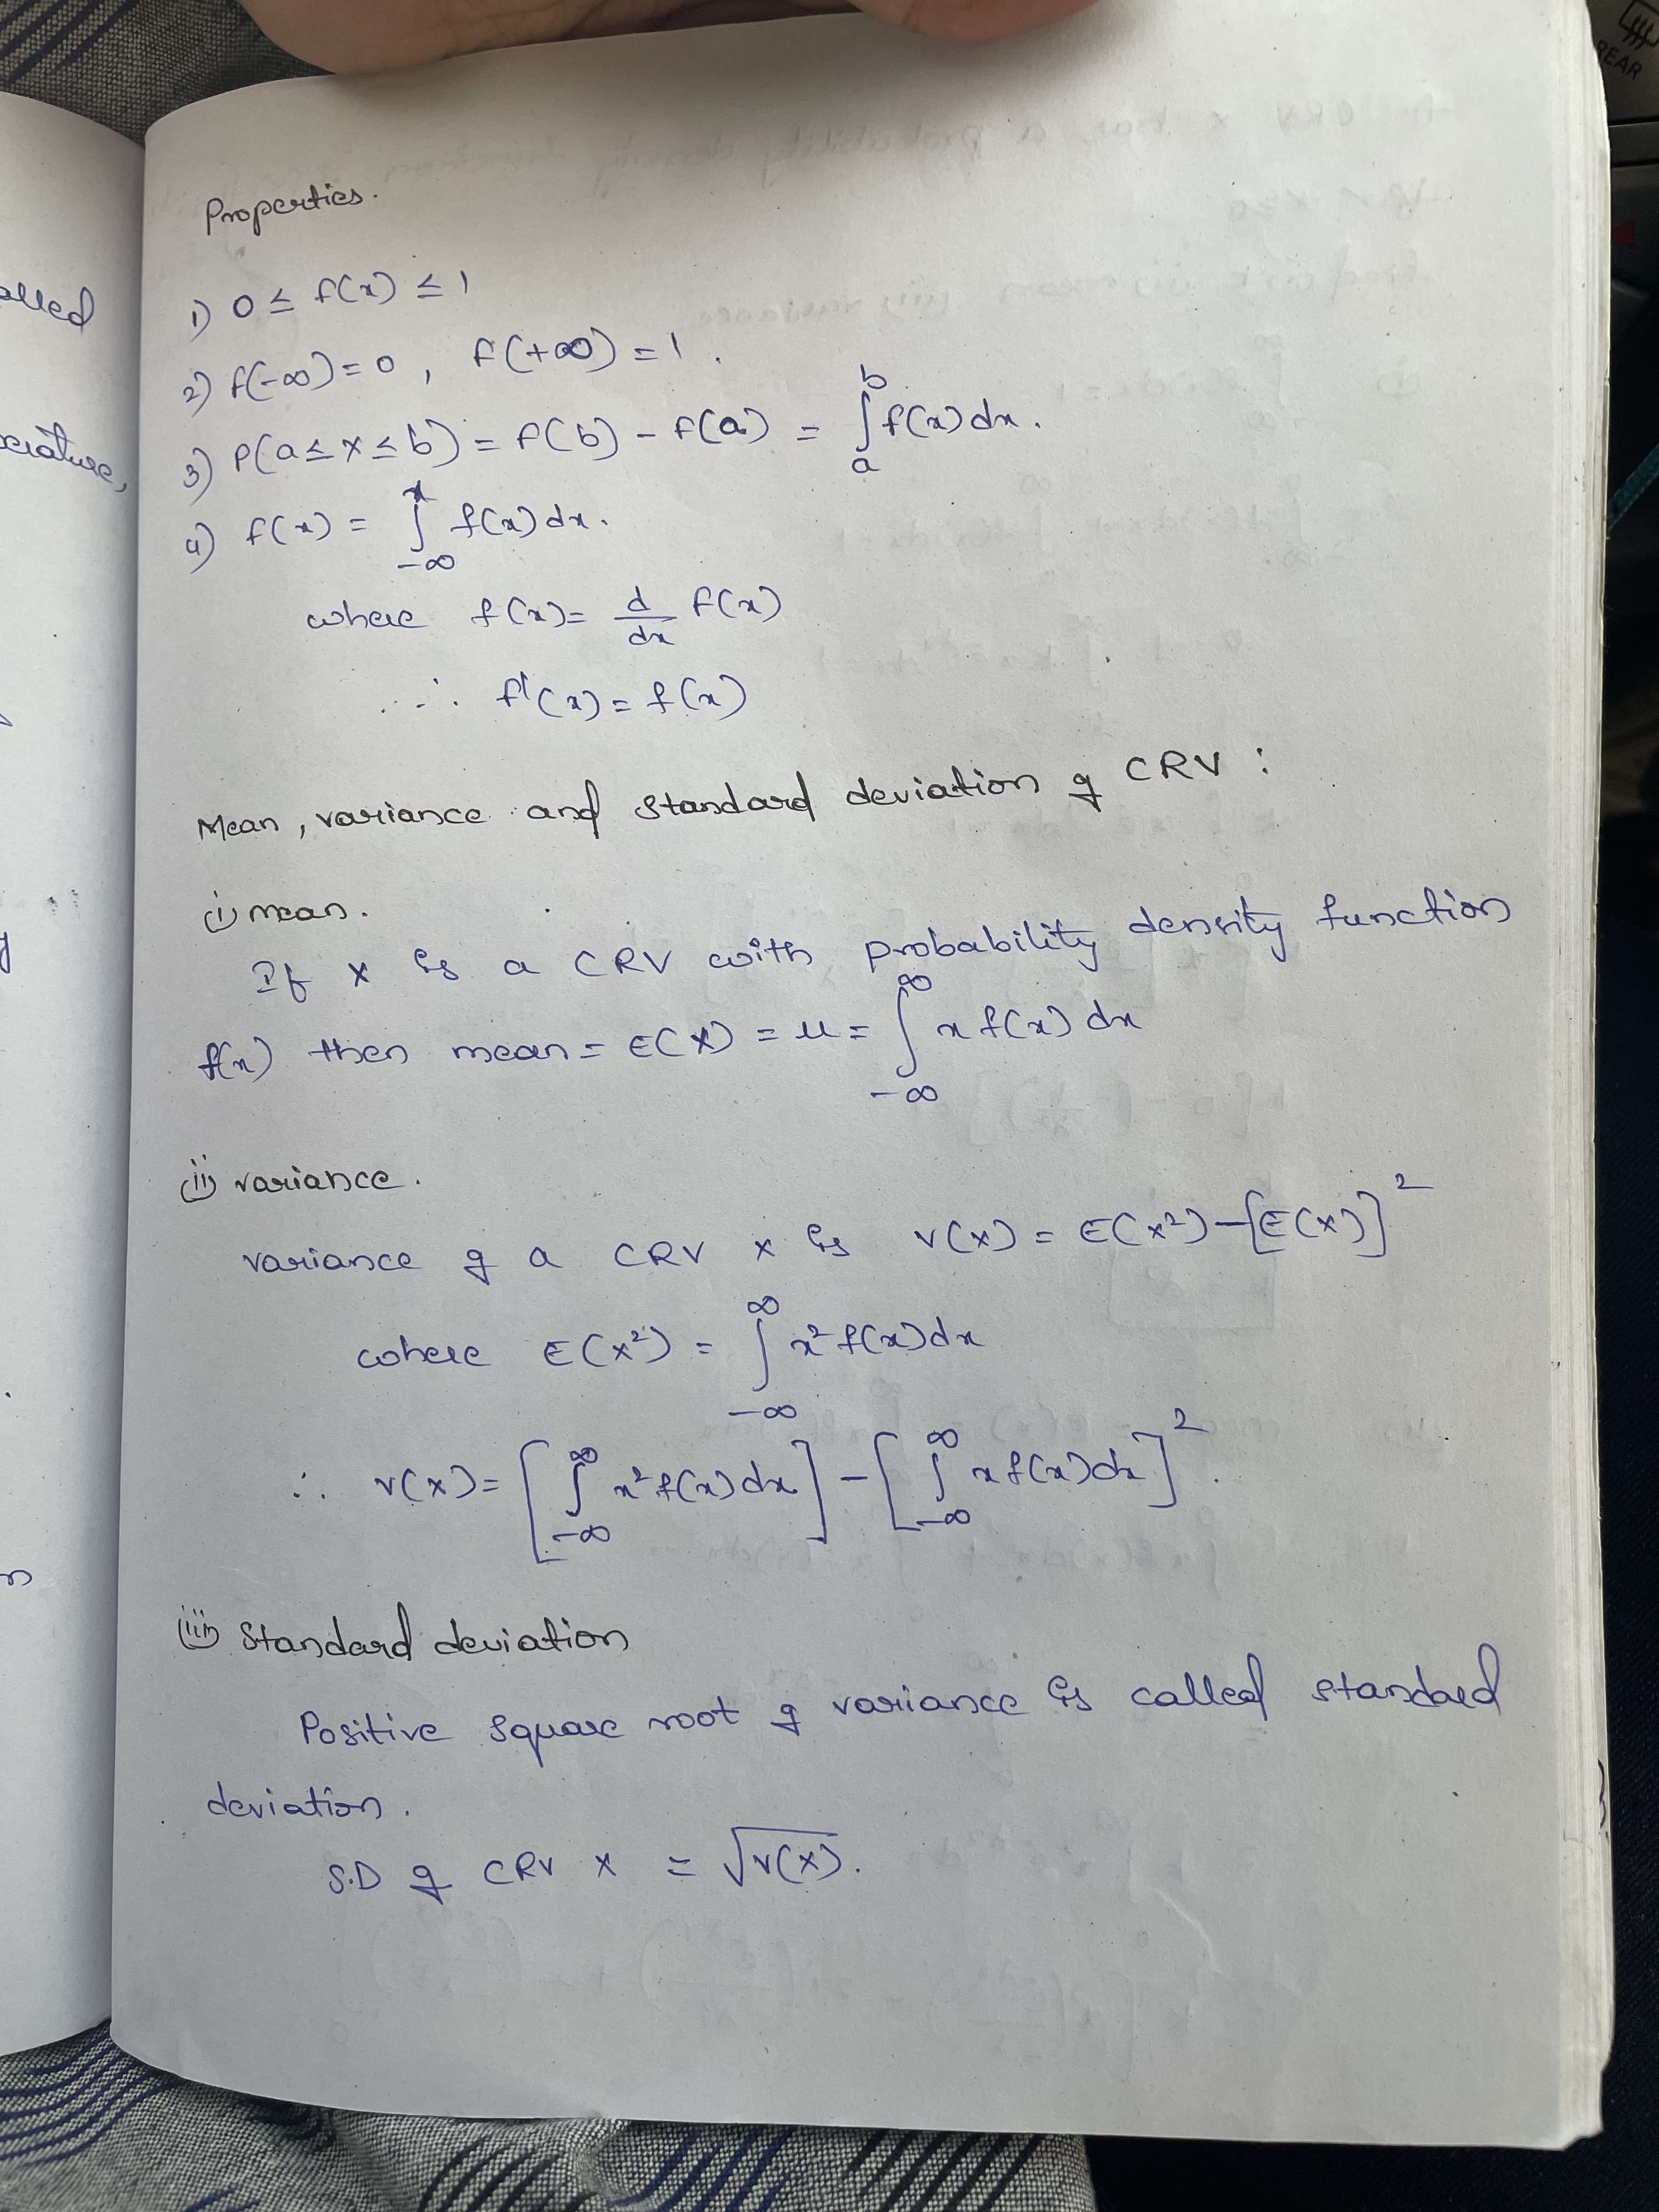 alled
erature,
Properties.
1) 0 ≤ F(x) ≤ 1
2) F(-∞) = 0 , F(+∞) = 1 .
3) P(a ≤ X ≤ b) = F(b) - F(a) = ∫_a^b f(x) dx .
4) F(x) = ∫_{-∞}^x f(x) dx .
where f(x) = d/dx F(x)
∴ F'(x) = f(x)
Mean, variance and standard deviation of CRV :
(i) mean .
If X is a CRV with probability density function
f(x) then mean = E(X) = μ = ∫_{-∞}^∞ x f(x) dx
(ii) variance .
variance of a CRV X is V(X) = E(X²) - [E(X)]²
where E(X²) = ∫_{-∞}^∞ x² f(x) dx
∴ V(X) = [∫_{-∞}^∞ x² f(x) dx] - [∫_{-∞}^∞ x f(x) dx]² .
(iii) Standard deviation
Positive square root of variance is called standard
deviation .
S.D of CRV X = √V(X) .
REAR